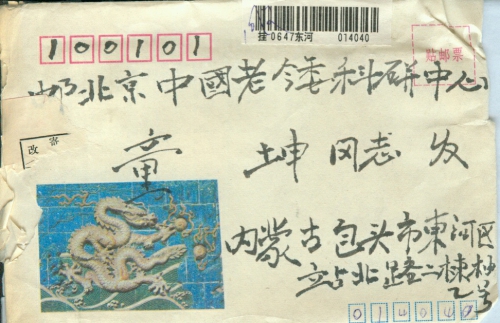 挂0647东河 014040
100101
贴邮票
邮北京中國老令委科研中心
寄
改
童 坤 同志 收
内蒙古包头市東河区
站北路二棟
乙号
014040